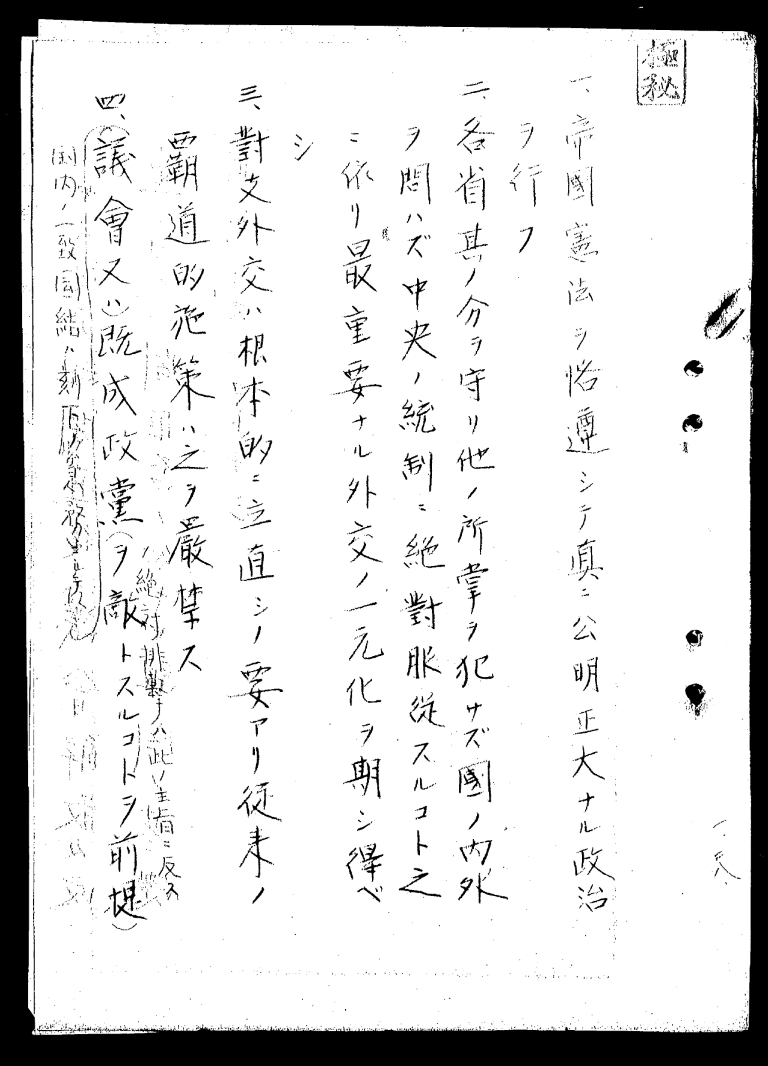 極秘
一、帝國憲法ヲ恪遵シテ真ニ公明正大ナル政治
ヲ行フ
二、各省其ノ分ヲ守リ他ノ所掌ヲ犯サズ國ノ内外
ヲ問ハズ中央ノ統制ニ絶對服從スルコト之
ニ依リ最重要ナル外交ノ一元化ヲ期シ得ベ
シ
三、對支外交ハ根本的ニ立直シノ要アリ従来ノ
覇道的施策ハ之ヲ厳禁ス
四、(議會又ハ)既成政黨(ヲ敵トスルコトヲ前提)
ノ絶対排撃ナハ此ノ主旨ニ反ス
国内ノ一致団結ハ刻下ノ急務